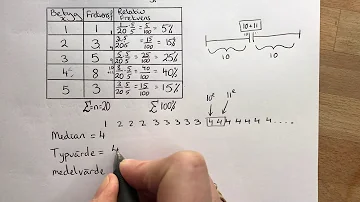 Betyg x Frekvens f Relativ Frekvens
1 1 1/20 · 5/5 = 5/100 = 5%
2 3 3/20 · 5/5 = 15/100 = 15%
3 5 5/20 · 5/5 = 25/100 = 25%
4 8 8/20 · 5/5 = 40/100 = 40%
5 3 3/20 · 5/5 = 15/100 = 15%
Σ=n=20 Σ100%
10+11
10 10
10e 11e
1 2 2 2 3 3 3 3 3 4 4 4 4 4 4 ....
Median = 4
Typvärde = 4
medelvärde